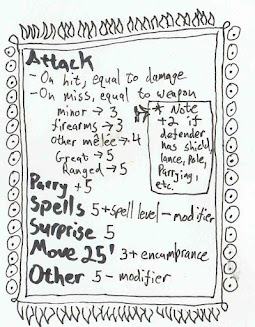 Attack
- On hit, equal to damage
- On miss, equal to weapon
minor → 3
firearms → 3
other mêlée → 4
Great → 5
Ranged → 5
* Note
+2 if
defender
has shield,
lance, Pole,
Parrying,
etc.
Parry +5
Spells 5+spell level - modifier
Surprise 5
Move 25' 3+encumbrance
Other 5 - modifier